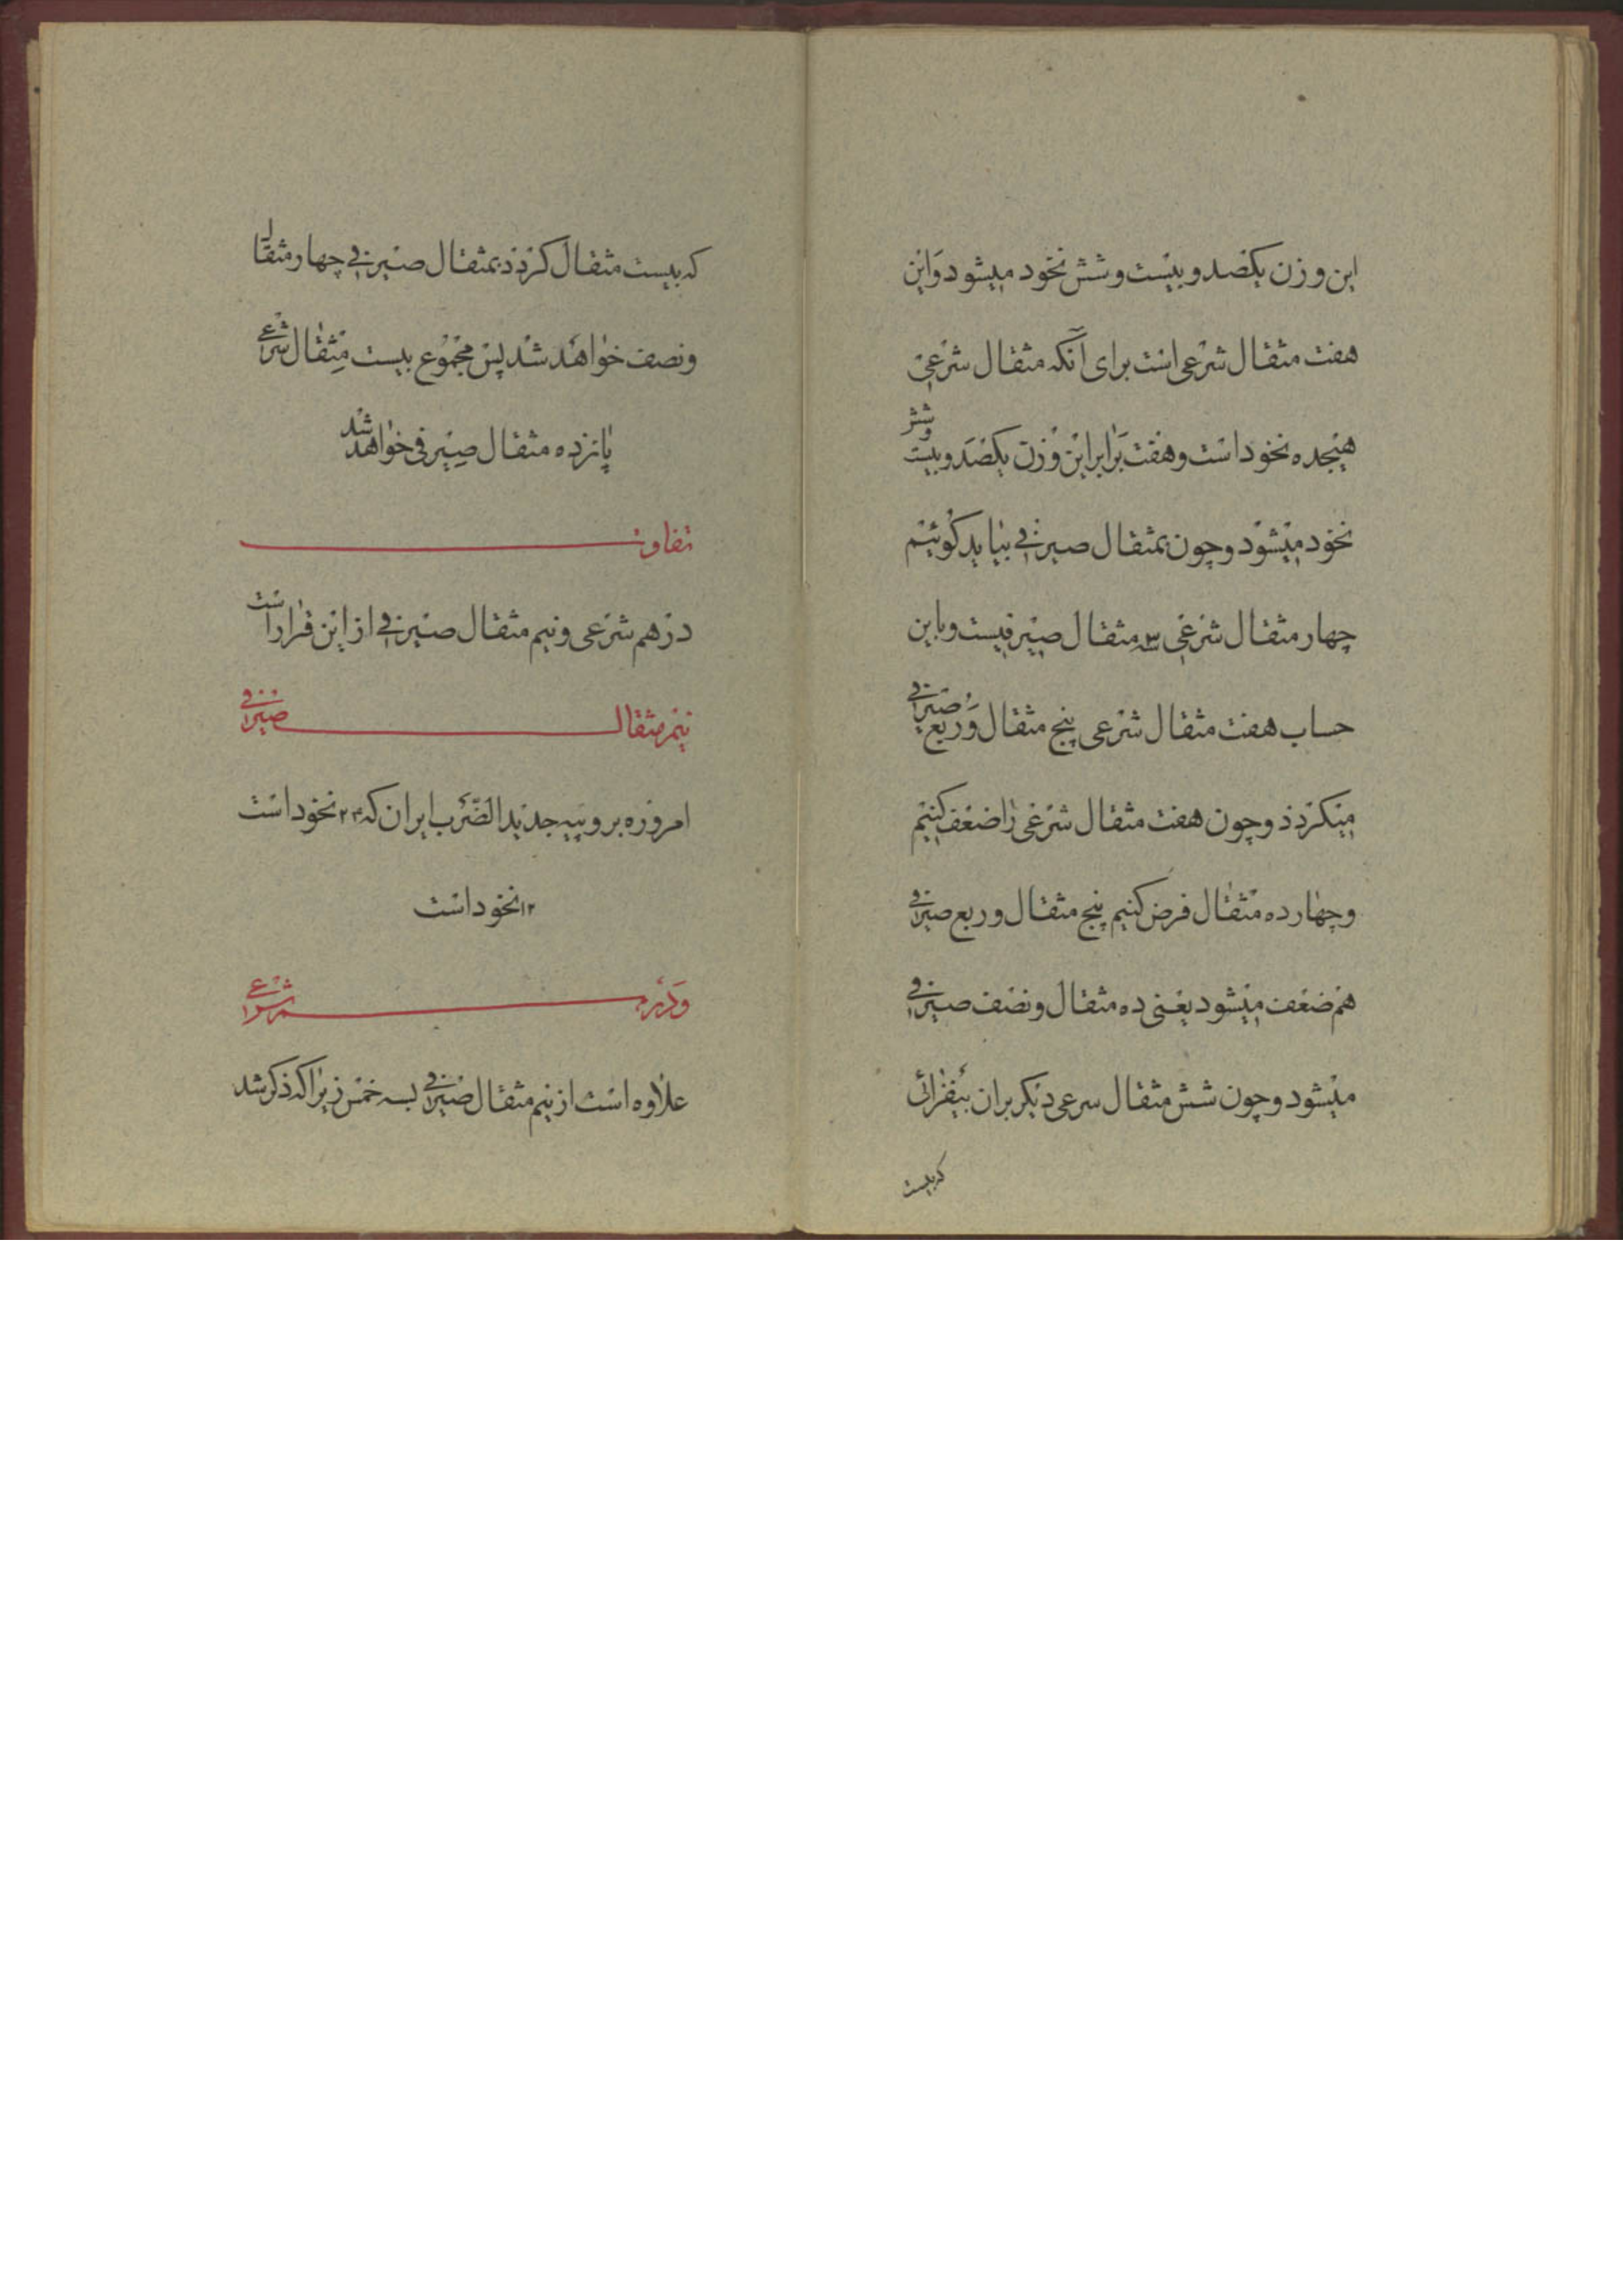 این وزن یکصد و بیست و شش نخود میشود و این
هفت مثقال شرعی است برای آنکه مثقال شرعی
هیجده نخود است و هفت برابر این وزن یکصد و بیست و شش
نخود میشود و چون بمثقال صیرفی بیاید گوئیم
چهار مثقال شرعی ۳ مثقال صیرفیست و باین
حساب هفت مثقال شرعی پنج مثقال و ربع صیرفی
میگردد و چون هفت مثقال شرعی را ضعف کنیم
و چهارده مثقال فرض کنیم پنج مثقال و ربع صیرفی
هم ضعف میشود یعنی ده مثقال و نصف صیرفی
میشود و چون شش مثقال سرعی دیگر بران بیفزائی
که بیست
که بیست مثقال گردد بمثقال صیرفی چهار مثقال
و نصف خواهد شد پس مجموع بیست مثقال شرعی
پانزده مثقال صیرفی خواهد شد
تفاوت
درهم شرعی و نیم مثقال صیرفی از این قرار است
نیم مثقال صیرفی
امروزه بر وییه جدید الضرب ایران که ۲۴ نخود است
۱۲ نخود است
و درهم شرعی
علاوه است از نیم مثقال صیرفی بسه خمس زیرا که ذکر شد